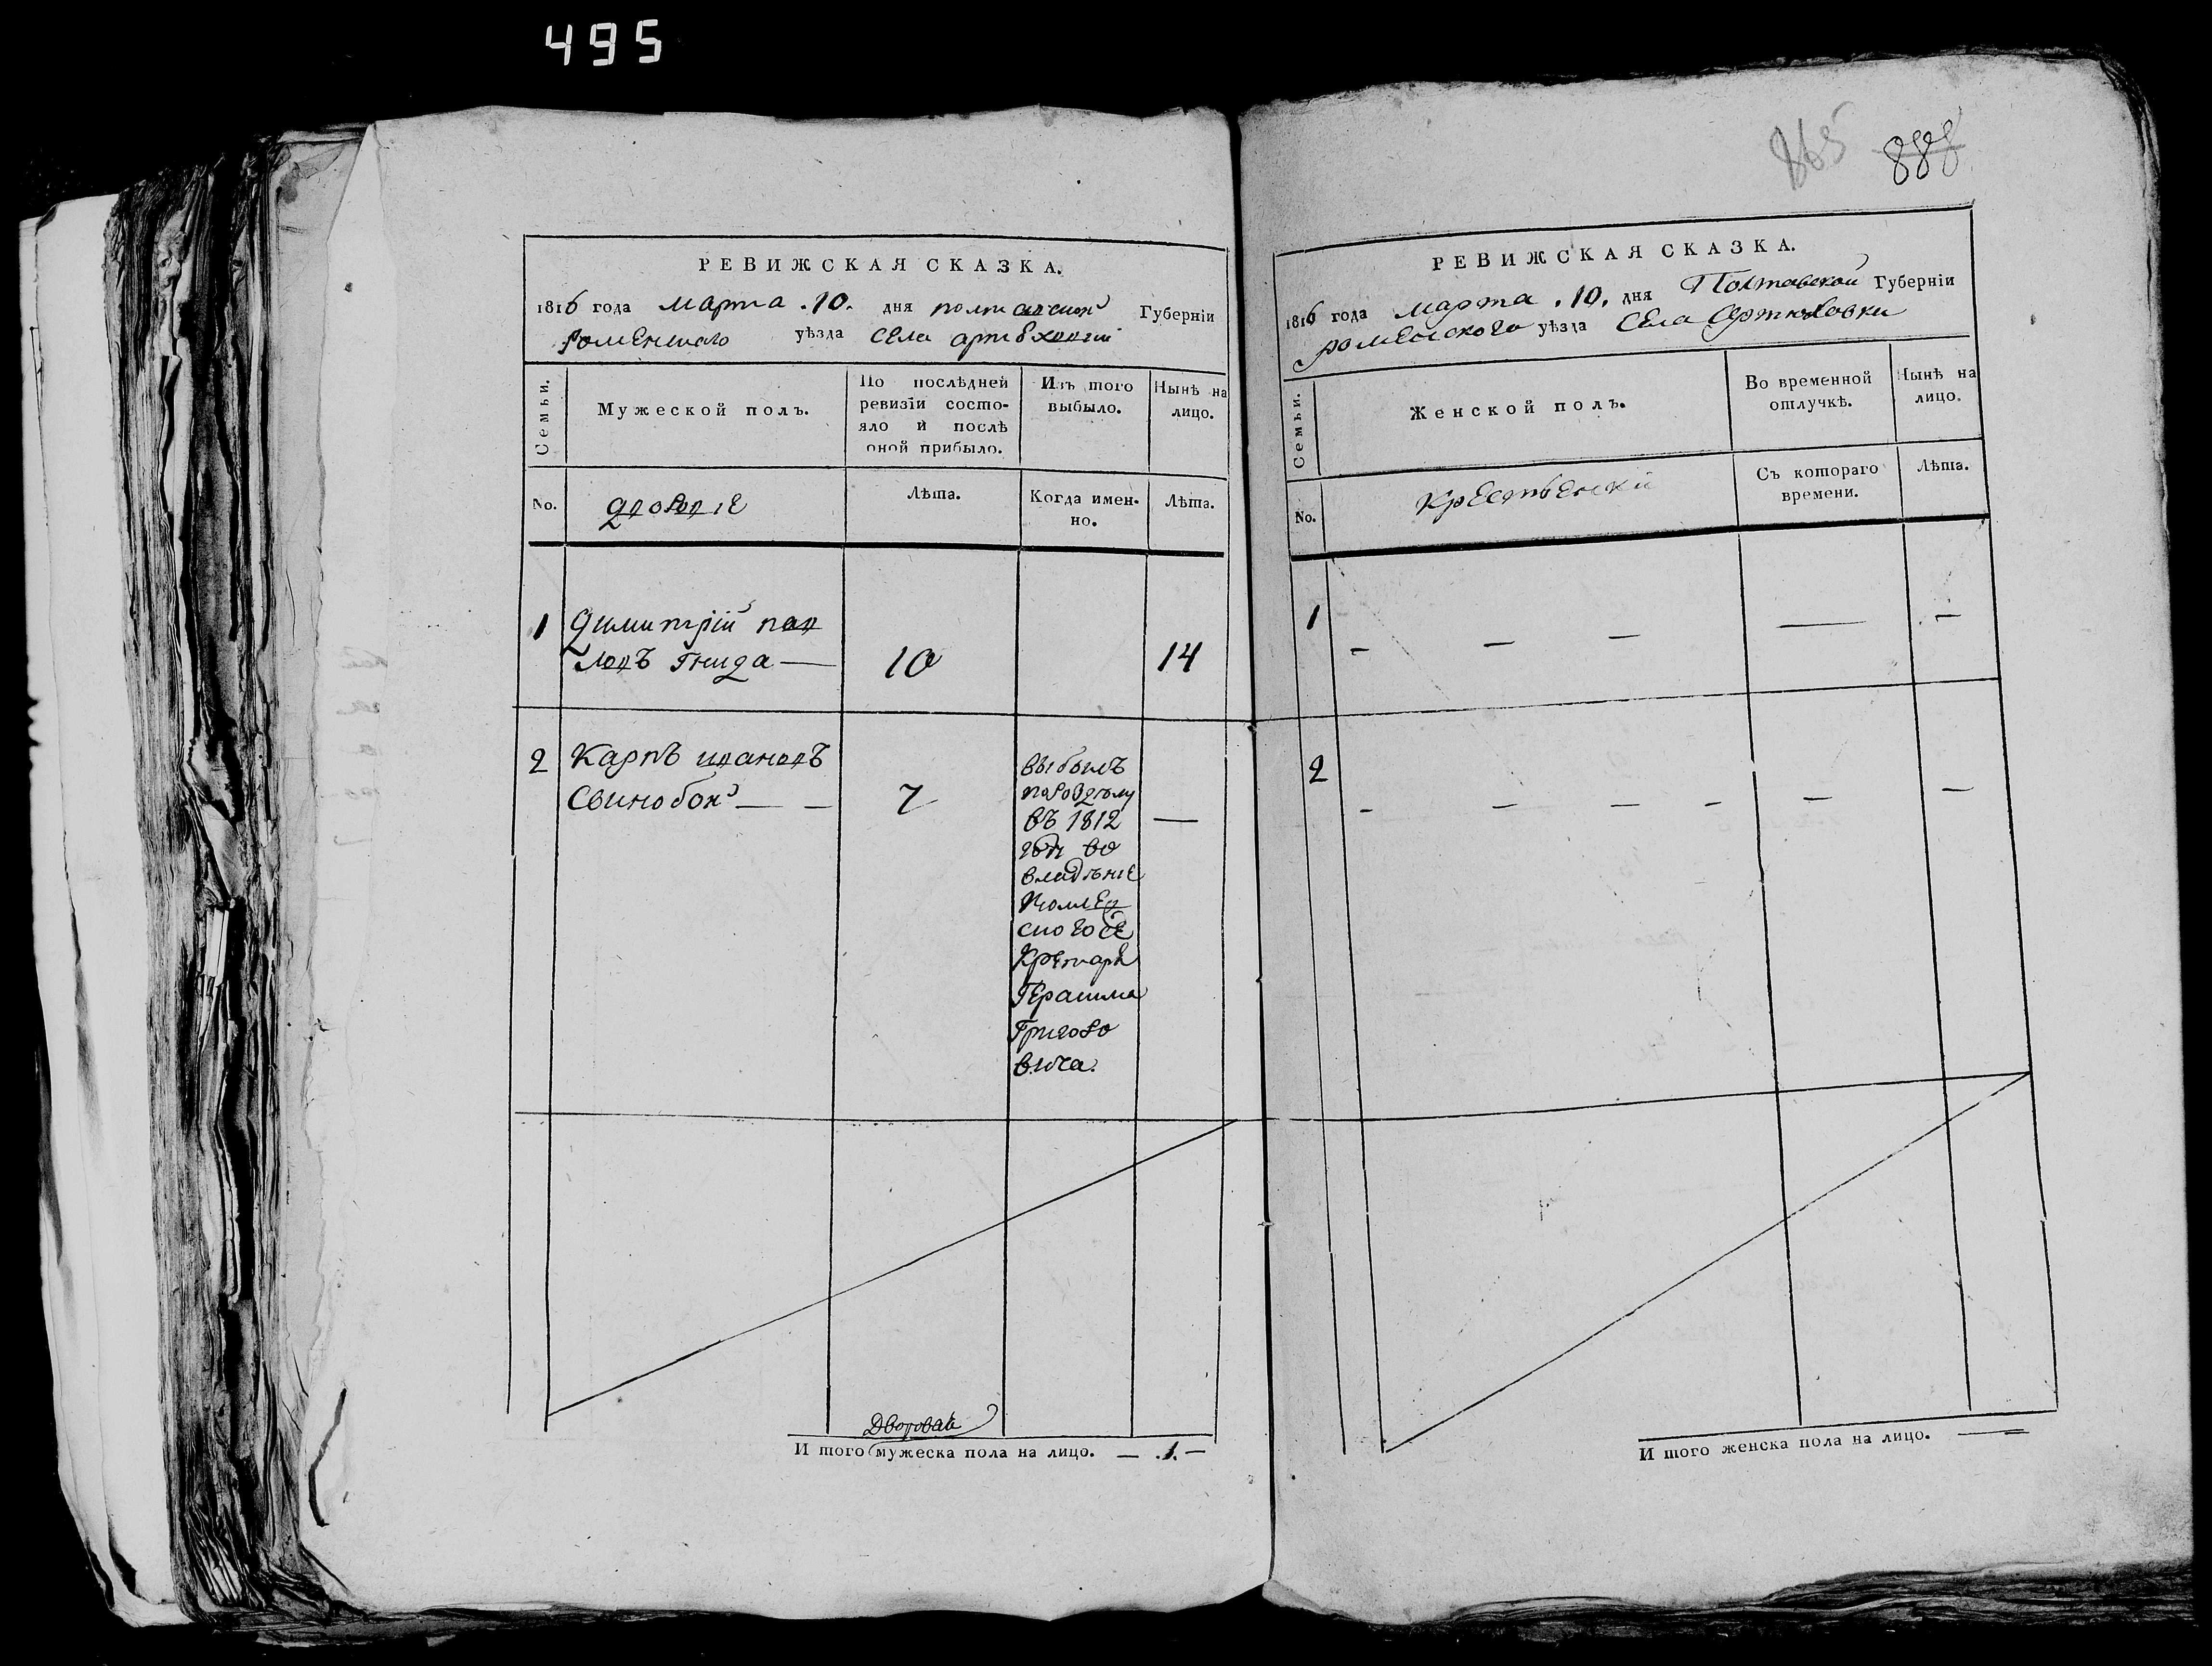 495
865 888
РЕВИЖСКАЯ СКАЗКА.
1816 года марта .10. дня полтавской Губерніи
роменского уѣзда села артюховки
Семьи.
Мужеской полъ.
По послѣдней
ревизіи состо-
яло и послѣ
оной прибыло.
Изъ того
выбыло.
Нынѣ на
лицо.
No.
дворовые
Лѣта.
Когда имен-
но.
Лѣта.
1 Димитрій пав
ловъ Гнида — 10 14
2 Карпъ ивановъ
Свинобой — — 7 —
выбылъ
по раздѣлу
въ 1812
годѣ во
владѣніе
колеж
ского се
кретаря
Герасима
Григоро
вича.
Дворовыхъ
И того мужеска пола на лицо. — .1. —
РЕВИЖСКАЯ СКАЗКА.
1816 года марта .10. дня Полтавской Губерніи
роменского уѣзда села Артюховки
Семьи.
Женской полъ.
Во временной
отлучкѣ.
Нынѣ на
лицо.
No.
Крестьянскій
Съ котораго
времени.
Лѣта.
1 — — — — —
2 — — — — — —
И того женска пола на лицо. —